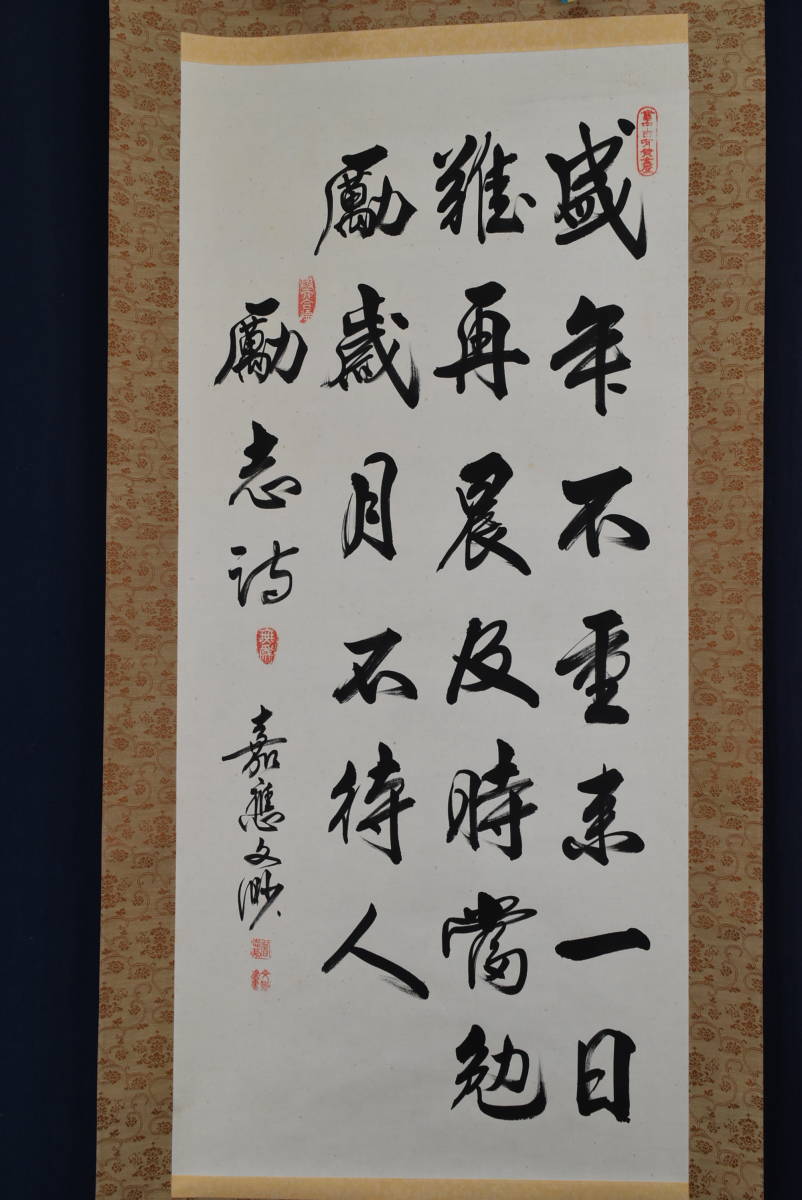 盛年不重来一日
難再晨及時當勉
勵歳月不待人
勵志詩
嘉應文